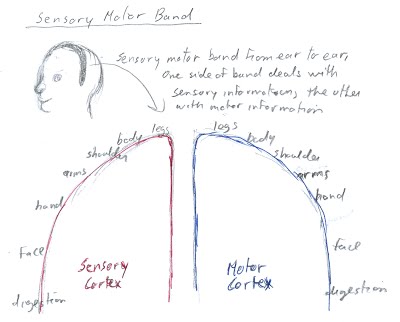 Sensory Motor Band
Sensory motor band from ear to ear,
One side of band deals with
sensory information, the other
with motor information
legs
body
shoulder
arms
hand
Face
digestion
Sensory
Cortex
legs
body
shoulder
arms
hand
Face
digestion
Motor
Cortex